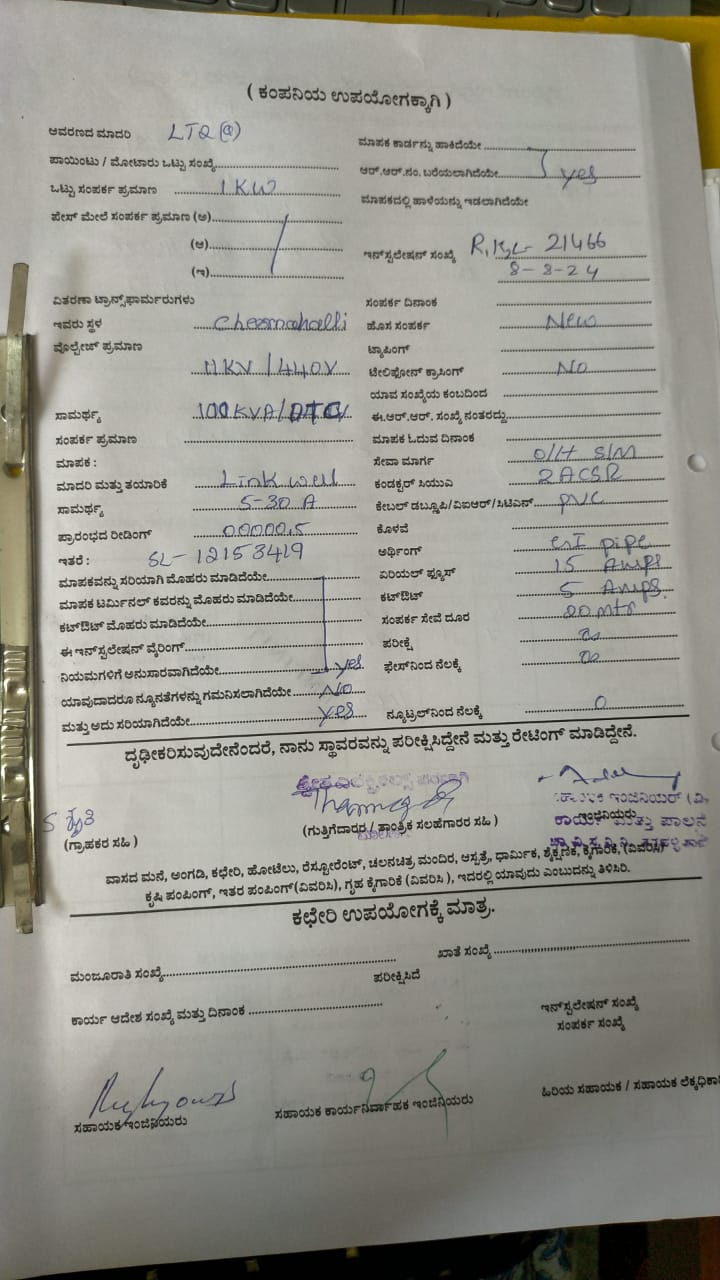 ( ಕಂಪನಿಯ ಉಪಯೋಗಕ್ಕಾಗಿ )
ಆವರಣದ ಮಾದರಿ LT2(a)
ಪಾಯಿಂಟು / ಮೋಟಾರು ಒಟ್ಟು ಸಂಖ್ಯೆ
ಒಟ್ಟು ಸಂಪರ್ಕ ಪ್ರಮಾಣ 1 KW
ಫೇಸ್ ಮೇಲೆ ಸಂಪರ್ಕ ಪ್ರಮಾಣ (ಅ)
(ಆ)
(ಇ)
ವಿತರಣಾ ಟ್ರಾನ್ಸ್‌ಫಾರ್ಮರುಗಳು
ಇವರು ಸ್ಥಳ
ವೊಲ್ಟೇಜ್ ಪ್ರಮಾಣ
11KV / 440V
ಸಾಮರ್ಥ್ಯ 100KVA/
ಸಂಪರ್ಕ ಪ್ರಮಾಣ
ಮಾಪಕ :
ಮಾದರಿ ಮತ್ತು ತಯಾರಿಕೆ Link well
ಸಾಮರ್ಥ್ಯ 5-30 A
ಪ್ರಾರಂಭದ ರೀಡಿಂಗ್ 00000.5
ಇತರೆ : SL- 12153419
ಮಾಪಕವನ್ನು ಸರಿಯಾಗಿ ಮೊಹರು ಮಾಡಿದೆಯೇ
ಮಾಪಕ ಟರ್ಮಿನಲ್ ಕವರನ್ನು ಮೊಹರು ಮಾಡಿದೆಯೇ
ಕಟ್‌ಔಟ್ ಮೊಹರು ಮಾಡಿದೆಯೇ
ಈ ಇನ್‌ಸ್ಟಲೇಷನ್ ವೈರಿಂಗ್
ನಿಯಮಗಳಿಗೆ ಅನುಸಾರವಾಗಿದೆಯೇ yes
ಯಾವುದಾದರೂ ನ್ಯೂನತೆಗಳನ್ನು ಗಮನಿಸಲಾಗಿದೆಯೇ No
ಮತ್ತು ಅದು ಸರಿಯಾಗಿದೆಯೇ yes
ಮಾಪಕ ಕಾರ್ಡನ್ನು ಹಾಕಿದೆಯೇ
ಆರ್.ಆರ್.ನಂ. ಬರೆಯಲಾಗಿದೆಯೇ yes
ಮಾಪಕದಲ್ಲಿ ಹಾಳೆಯನ್ನು ಇಡಲಾಗಿದೆಯೇ
ಇನ್‌ಸ್ಟಲೇಷನ್ ಸಂಖ್ಯೆ 21466
8-8-24
ಸಂಪರ್ಕ ದಿನಾಂಕ
ಹೊಸ ಸಂಪರ್ಕ New
ಟ್ಯಾಪಿಂಗ್
ಟೆಲಿಫೋನ್ ಕ್ರಾಸಿಂಗ್ No
ಯಾವ ಸಂಖ್ಯೆಯ ಕಂಬದಿಂದ
ಈ.ಆರ್.ಆರ್. ಸಂಖ್ಯೆ ನಂತರದ್ದು
ಮಾಪಕ ಓದುವ ದಿನಾಂಕ
ಸೇವಾ ಮಾರ್ಗ O/H S/M
ಕಂಡಕ್ಟರ್ ಸಿಯುಎ 2 ACSR
ಕೇಬಲ್ ಡಬ್ಲ್ಯೂಪಿ/ವಿಐಆರ್/ಸಿಟಿಎಸ್ PVC
ಕೊಳವೆ
ಅರ್ಥಿಂಗ್ GI pipe
ಏರಿಯಲ್ ಫ್ಯೂಸ್ 15 Amps
ಕಟ್‌ಔಟ್ 5 Amps.
ಸಂಪರ್ಕ ಸೇವೆ ದೂರ 20 mtr
ಪರೀಕ್ಷೆ ∞
ಫೇಸ್‌ನಿಂದ ನೆಲಕ್ಕೆ ∞
ನ್ಯೂಟ್ರಲ್‌ನಿಂದ ನೆಲಕ್ಕೆ 0
ದೃಢೀಕರಿಸುವುದೇನೆಂದರೆ, ನಾನು ಸ್ಥಾವರವನ್ನು ಪರೀಕ್ಷಿಸಿದ್ದೇನೆ ಮತ್ತು ರೇಟಿಂಗ್ ಮಾಡಿದ್ದೇನೆ.
(ಗ್ರಾಹಕರ ಸಹಿ )
(ಗುತ್ತಿಗೆದಾರರ / ತಾಂತ್ರಿಕ ಸಲಹೆಗಾರರ ಸಹಿ )
ವಾಸದ ಮನೆ, ಅಂಗಡಿ, ಕಛೇರಿ, ಹೋಟೆಲು, ರೆಸ್ಟೋರೆಂಟ್, ಚಲನಚಿತ್ರ ಮಂದಿರ, ಆಸ್ಪತ್ರೆ, ಧಾರ್ಮಿಕ, ಶೈಕ್ಷಣಿಕ, ಕೈಗಾರಿಕೆ, (ವಿವರಿಸಿ)
ಕೃಷಿ ಪಂಪಿಂಗ್, ಇತರ ಪಂಪಿಂಗ್ (ವಿವರಿಸಿ), ಗೃಹ ಕೈಗಾರಿಕೆ (ವಿವರಿಸಿ ), ಇದರಲ್ಲಿ ಯಾವುದು ಎಂಬುದನ್ನು ತಿಳಿಸಿರಿ.
ಕಛೇರಿ ಉಪಯೋಗಕ್ಕೆ ಮಾತ್ರ.
ಮಂಜೂರಾತಿ ಸಂಖ್ಯೆ
ಖಾತೆ ಸಂಖ್ಯೆ
ಪರೀಕ್ಷಿಸಿದೆ
ಕಾರ್ಯ ಆದೇಶ ಸಂಖ್ಯೆ ಮತ್ತು ದಿನಾಂಕ
ಇನ್‌ಸ್ಟಲೇಷನ್ ಸಂಖ್ಯೆ
ಸಂಪರ್ಕ ಸಂಖ್ಯೆ
ಸಹಾಯಕ ಇಂಜಿನಿಯರು
ಸಹಾಯಕ ಕಾರ್ಯನಿರ್ವಾಹಕ ಇಂಜಿನಿಯರು
ಹಿರಿಯ ಸಹಾಯಕ / ಸಹಾಯಕ ಲೆಕ್ಕಾಧಿಕಾರಿ